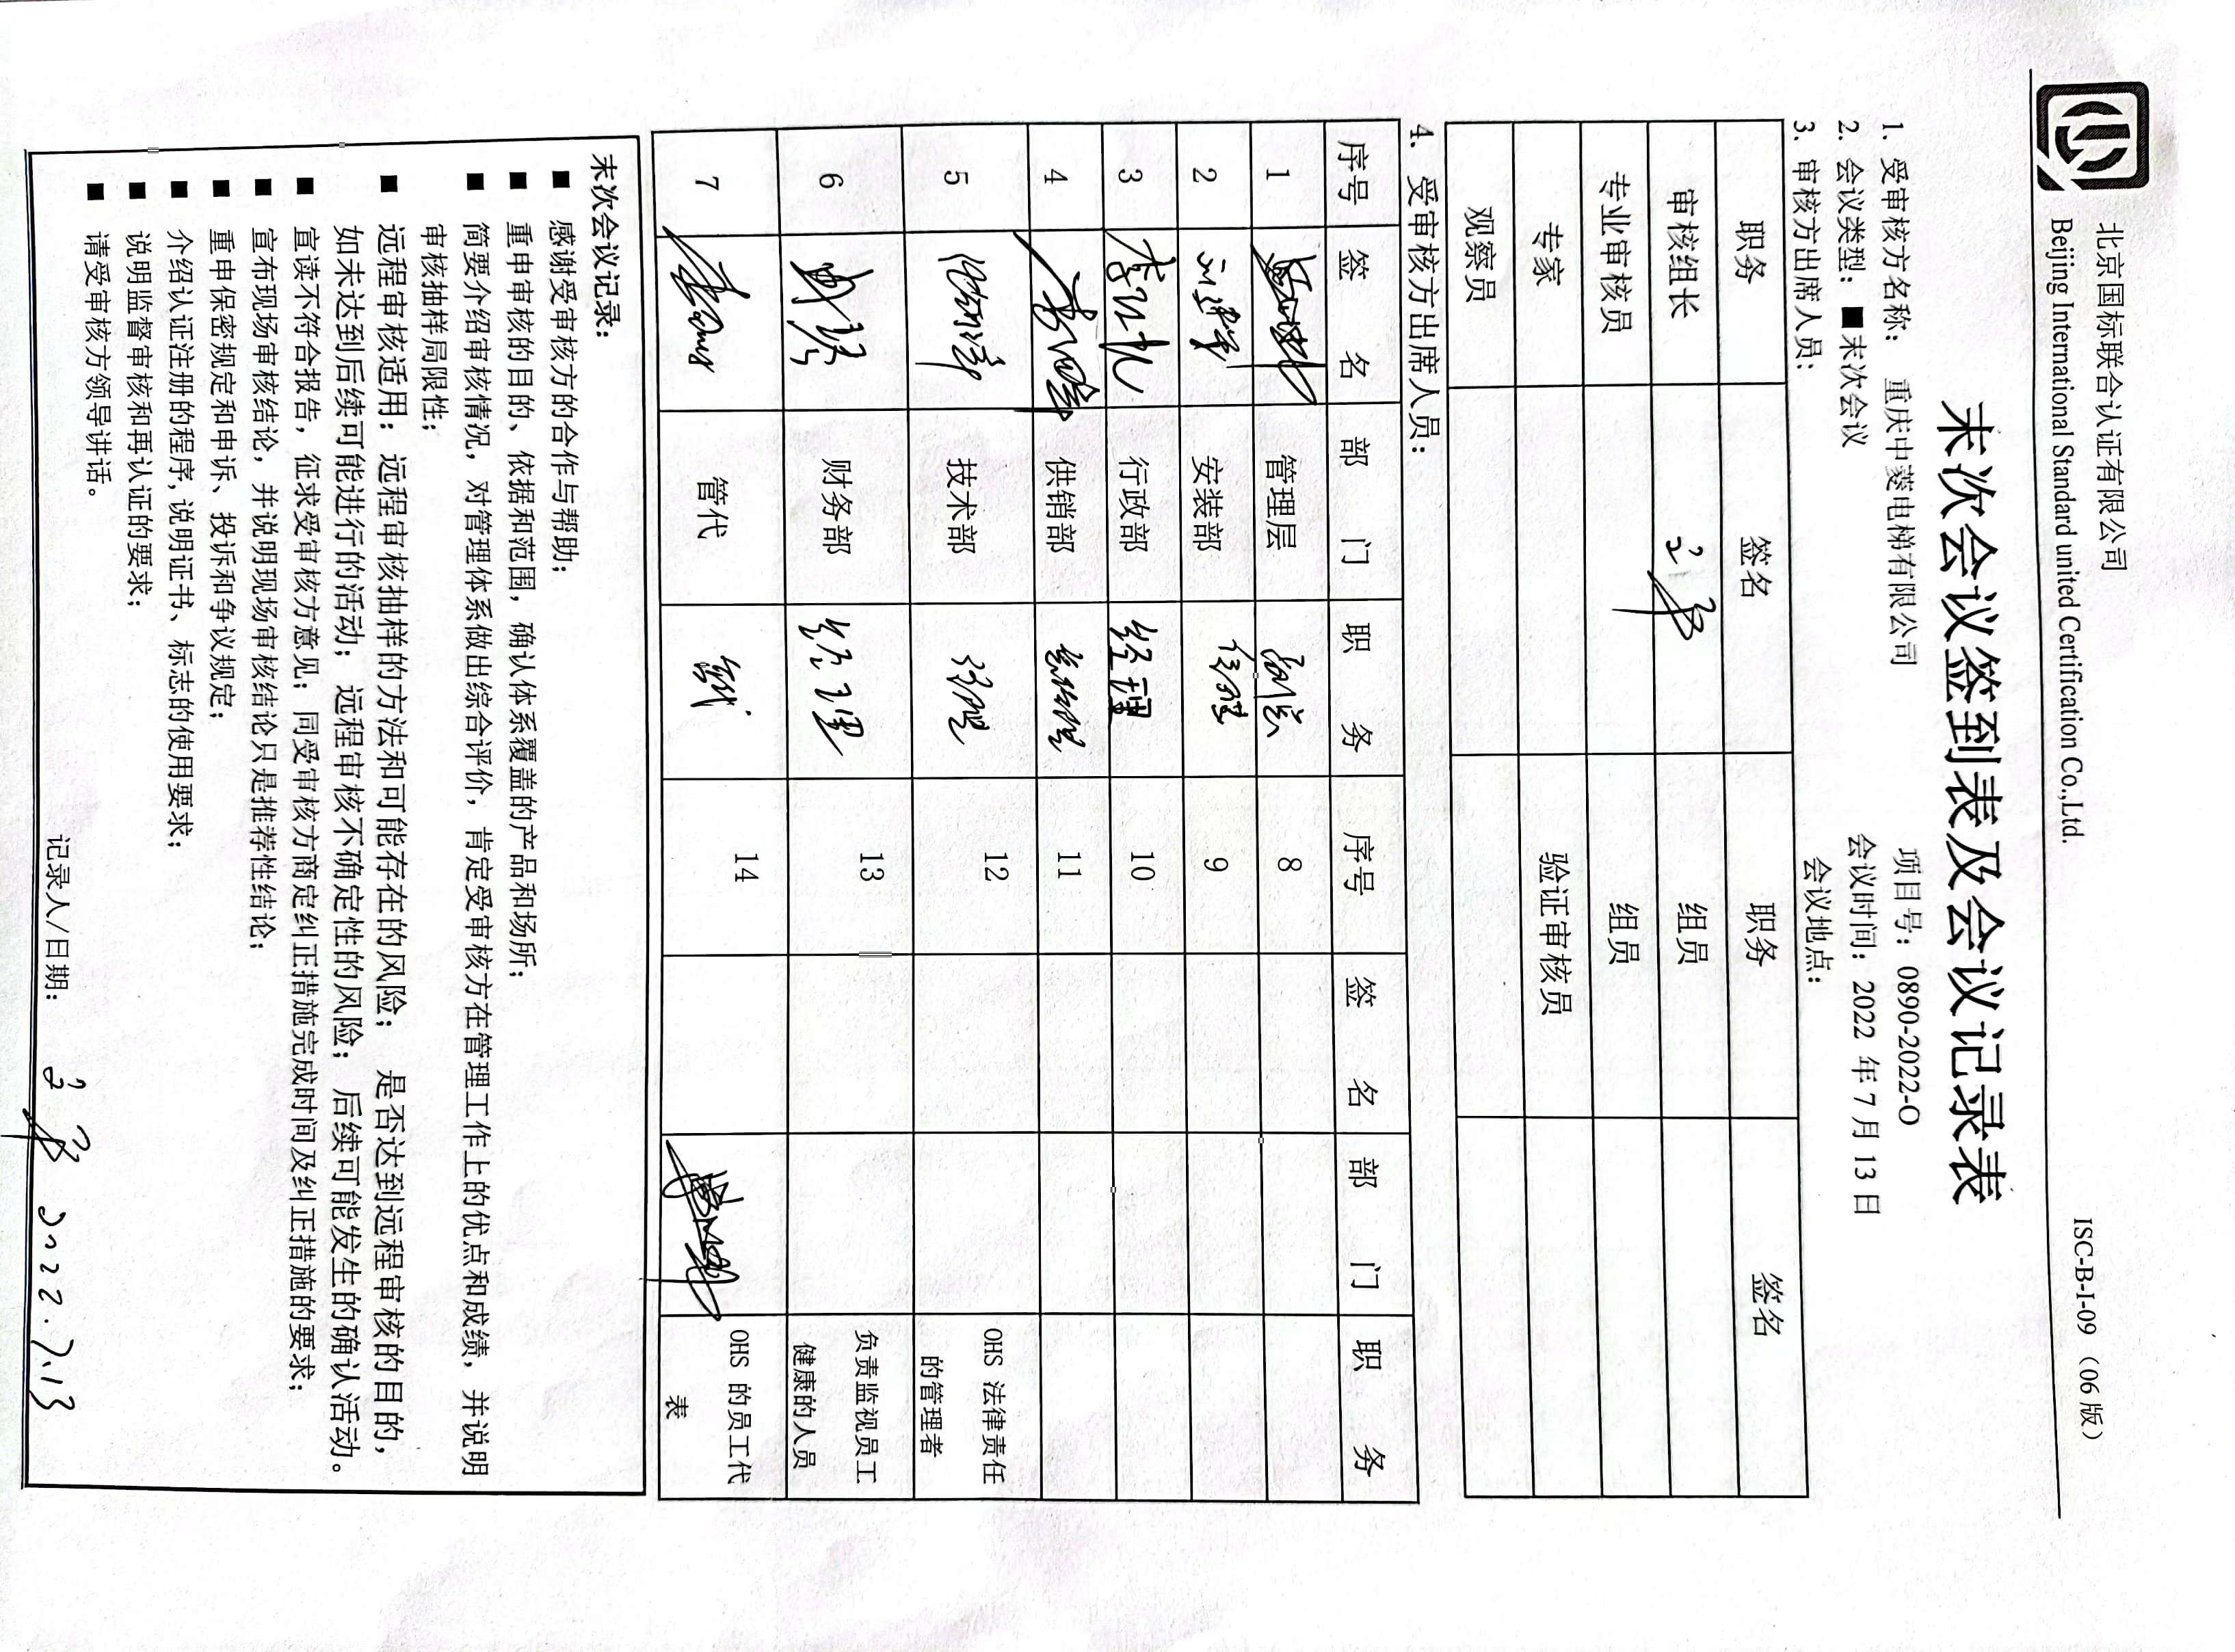 北京国标联合认证有限公司 ISC-B-I-09（06版）
Beijing International Standard united Certification Co.,Ltd.
末次会议签到表及会议记录表
1. 受审核方名称： 重庆中菱电梯有限公司 项目号：0890-2022-O
2. 会议类型：■末次会议 会议时间：2022 年 7 月 13 日
3. 审核方出席人员： 会议地点：
职务 签名 职务 签名
审核组长 组员
专业审核员 组员
专家 验证审核员
观察员
4. 受审核方出席人员：
序号 签 名 部 门 职 务 序号 签 名 部 门 职 务
1 管理层 副总 8
2 安装部 经理 9
3 行政部 经理 10
4 供销部 11
5 技术部 经理 12 OHS 法律责任
的管理者
6 财务部 经理 13 负责监视员工
健康的人员
7 管代 管代 14 OHS 的员工代
表
末次会议记录：
■ 感谢受审核方的合作与帮助；
■ 重申审核的目的、依据和范围，确认体系覆盖的产品和场所；
■ 简要介绍审核情况，对管理体系做出综合评价，肯定受审核方在管理工作上的优点和成绩，并说明
审核抽样局限性；
■ 远程审核适用：远程审核抽样的方法和可能存在的风险； 是否达到远程审核的目的，
如未达到后续可能进行的活动； 远程审核不确定性的风险； 后续可能发生的确认活动。
■ 宣读不符合报告，征求受审核方意见；同受审核方商定纠正措施完成时间及纠正措施的要求；
■ 宣布现场审核结论，并说明现场审核结论只是推荐性结论；
■ 重申保密规定和申诉、投诉和争议规定；
■ 介绍认证注册的程序,说明证书、标志的使用要求；
■ 说明监督审核和再认证的要求；
■ 请受审核方领导讲话。
记录人/日期： 2022.7.13